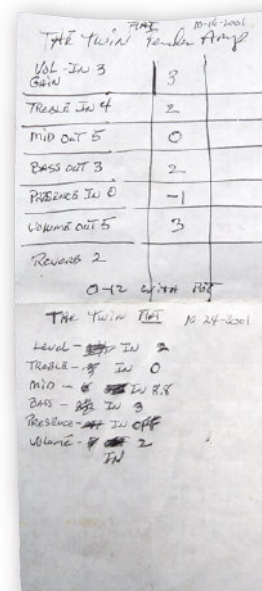 FLAT 10-16-2001
THE Twin Fender Amp
VOL-IN 3 3
GAIN
TREBLE IN 4 2
MID OUT 5 0
BASS OUT 3 2
PRESENCE IN 0 -1
VOLUME OUT 5 3
REVERB 2
0-12 WITH
THE Twin FLAT 10 24-2001
Level - IN 2
TREBLE - IN 0
MID - IN 8.8
BASS - IN 3
PRESENCE - IN OFF
VOLUME - 2
IN